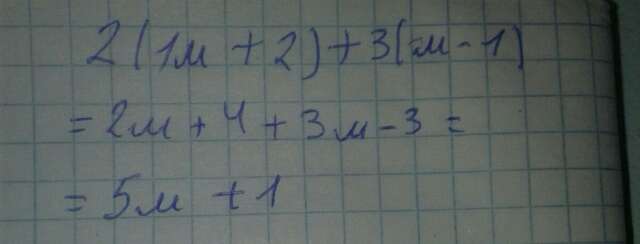 2(1м + 2) + 3(м - 1)
= 2м + 4 + 3м - 3 =
= 5м + 1